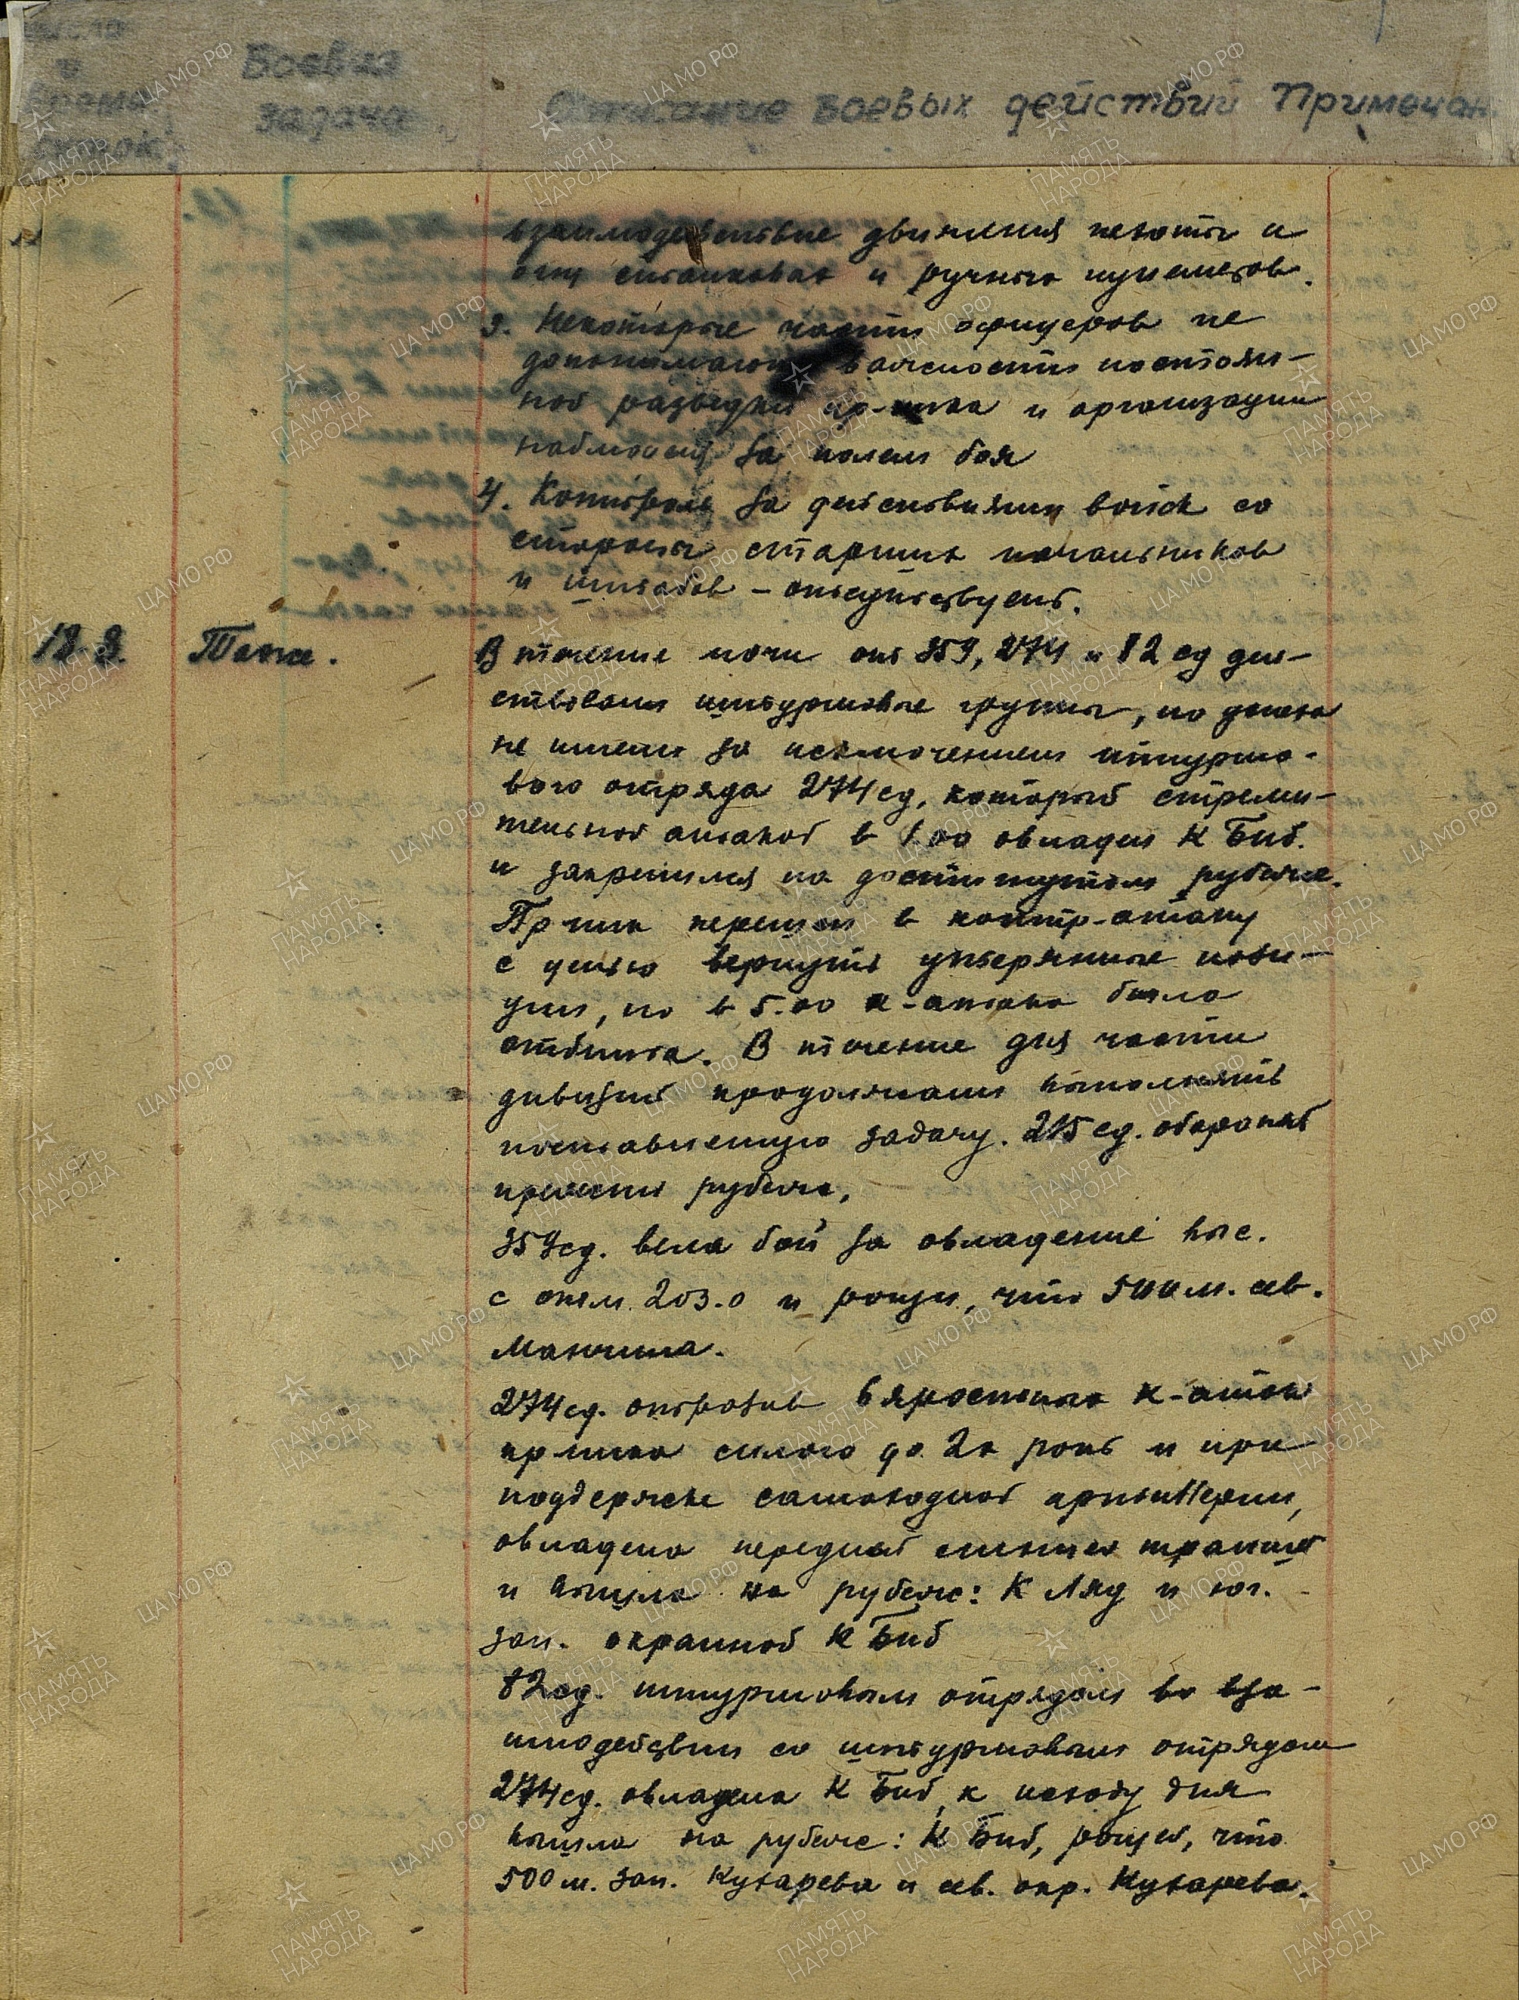 число
и
время
Боевая
задача
Описание боевых действий
Примечан.
взаимодействие движения пехоты и
огня станковых и ручных пулеметов.
3. Некоторые части офицеров не
допонимают важности постоян-
ной разведки пр-ника и организации
наблюден. за полем боя
4. Контроль за действиями войск со
стороны старших начальников
и штабов – отсутствует.
18.3.
Таже.
В течение ночи от 359, 274 и 82 сд дей-
ствовали штурмовые группы, но успеха
не имели за исключением штурмо-
вого отряда 274 сд, который стреми-
тельной атакой в 1.00 овладел К Биб.
и закрепился на достигнутом рубеже.
Пр-ник перешел в контр-атаку
с целью вернуть утверянные пози-
ции, но в 5.00 к-атака была
отбита. В течение дня части
дивизий продолжали выполнять
поставленную задачу. 215 сд. обороняет
прежний рубеж,
359 сд. вела бой за овладение выс.
с отм. 203.0 и рощи, что 500 м. сев.
274 сд. отразив 6 яростных к-атак
пр-ника силою до 2х рот и при
поддержке самоходной артиллерии,
овладела передней линией траншей
и вышла на рубеж: К Ляд и юг.
зап. окраиной К Биб
82 сд. штурмовым отрядом во вза-
имодейсвии со штурмовым отрядом
274 сд. овладела К Биб, к исходу дня
вышла на рубеж: К Биб, рощей, что
500 м. зап. Кухарева и сев. окр. Кухарева.